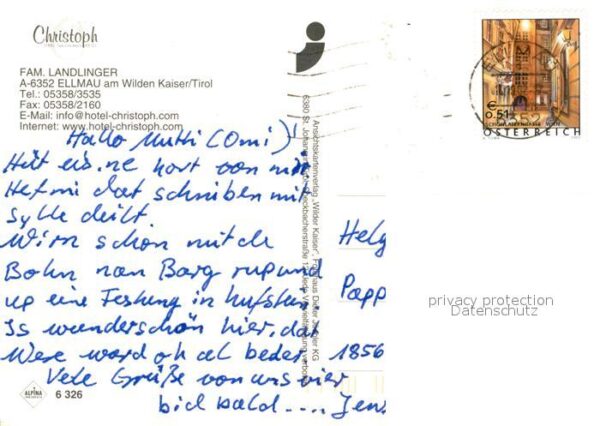 Christoph
FAM. LANDLINGER
A-6352 ELLMAU am Wilden Kaiser/Tirol
Tel.: 05358/3535
Fax: 05358/2160
E-Mail: info@hotel-christoph.com
Internet: www.hotel-christoph.com
Hallo Mutti (Omi)!
Hüt eis. ne kort von mir
Hef mi dat schriben mit
Sylke deilt.
Wirn schon mit de
Bohn nan Barg rup und
up eine Festung in Kufstein
Is wunderschön hier, dat
Were ward ok al beder.
Vele Grüße von uns vier
bid bald.... Jens
ALPINA
6 326
Ansichtskartenverlag "Wilder Kaiser",
6380 St. Johann
€ 0.51
ÖSTERREICH
6352
Helg
Papp
1856
privacy protection
Datenschutz